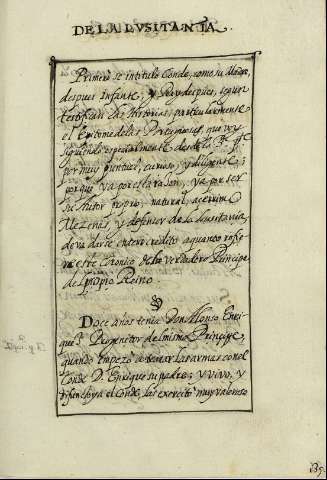 DE LA LVSITANIA.
Primero se intitulo Conde, como su Padre,
despues Infante, y Rey despues, segun
testifican las Historias, particularmente
el Epitome de las Portuguesas, que voy
siguiendo especialmente desde la
por muy puntual, curioso, y diligente;
porque ya por esta raçon, ya por ser
su Autor proprio, natural, acerrimo
Mezenas, y defensor de la Lusitania,
deva darse entero credito a quanto refie
re este Coronico de los verdaderos Principes
de su propio Reino.
Doce años tenia Don Alonso Enri
que Progenitor del mismo Principe,
quando empezò a tomar las armas con el
Conde D. Enrique su padre; y vivo, y
difunto ya el Conde, las exercitò muy valeroso